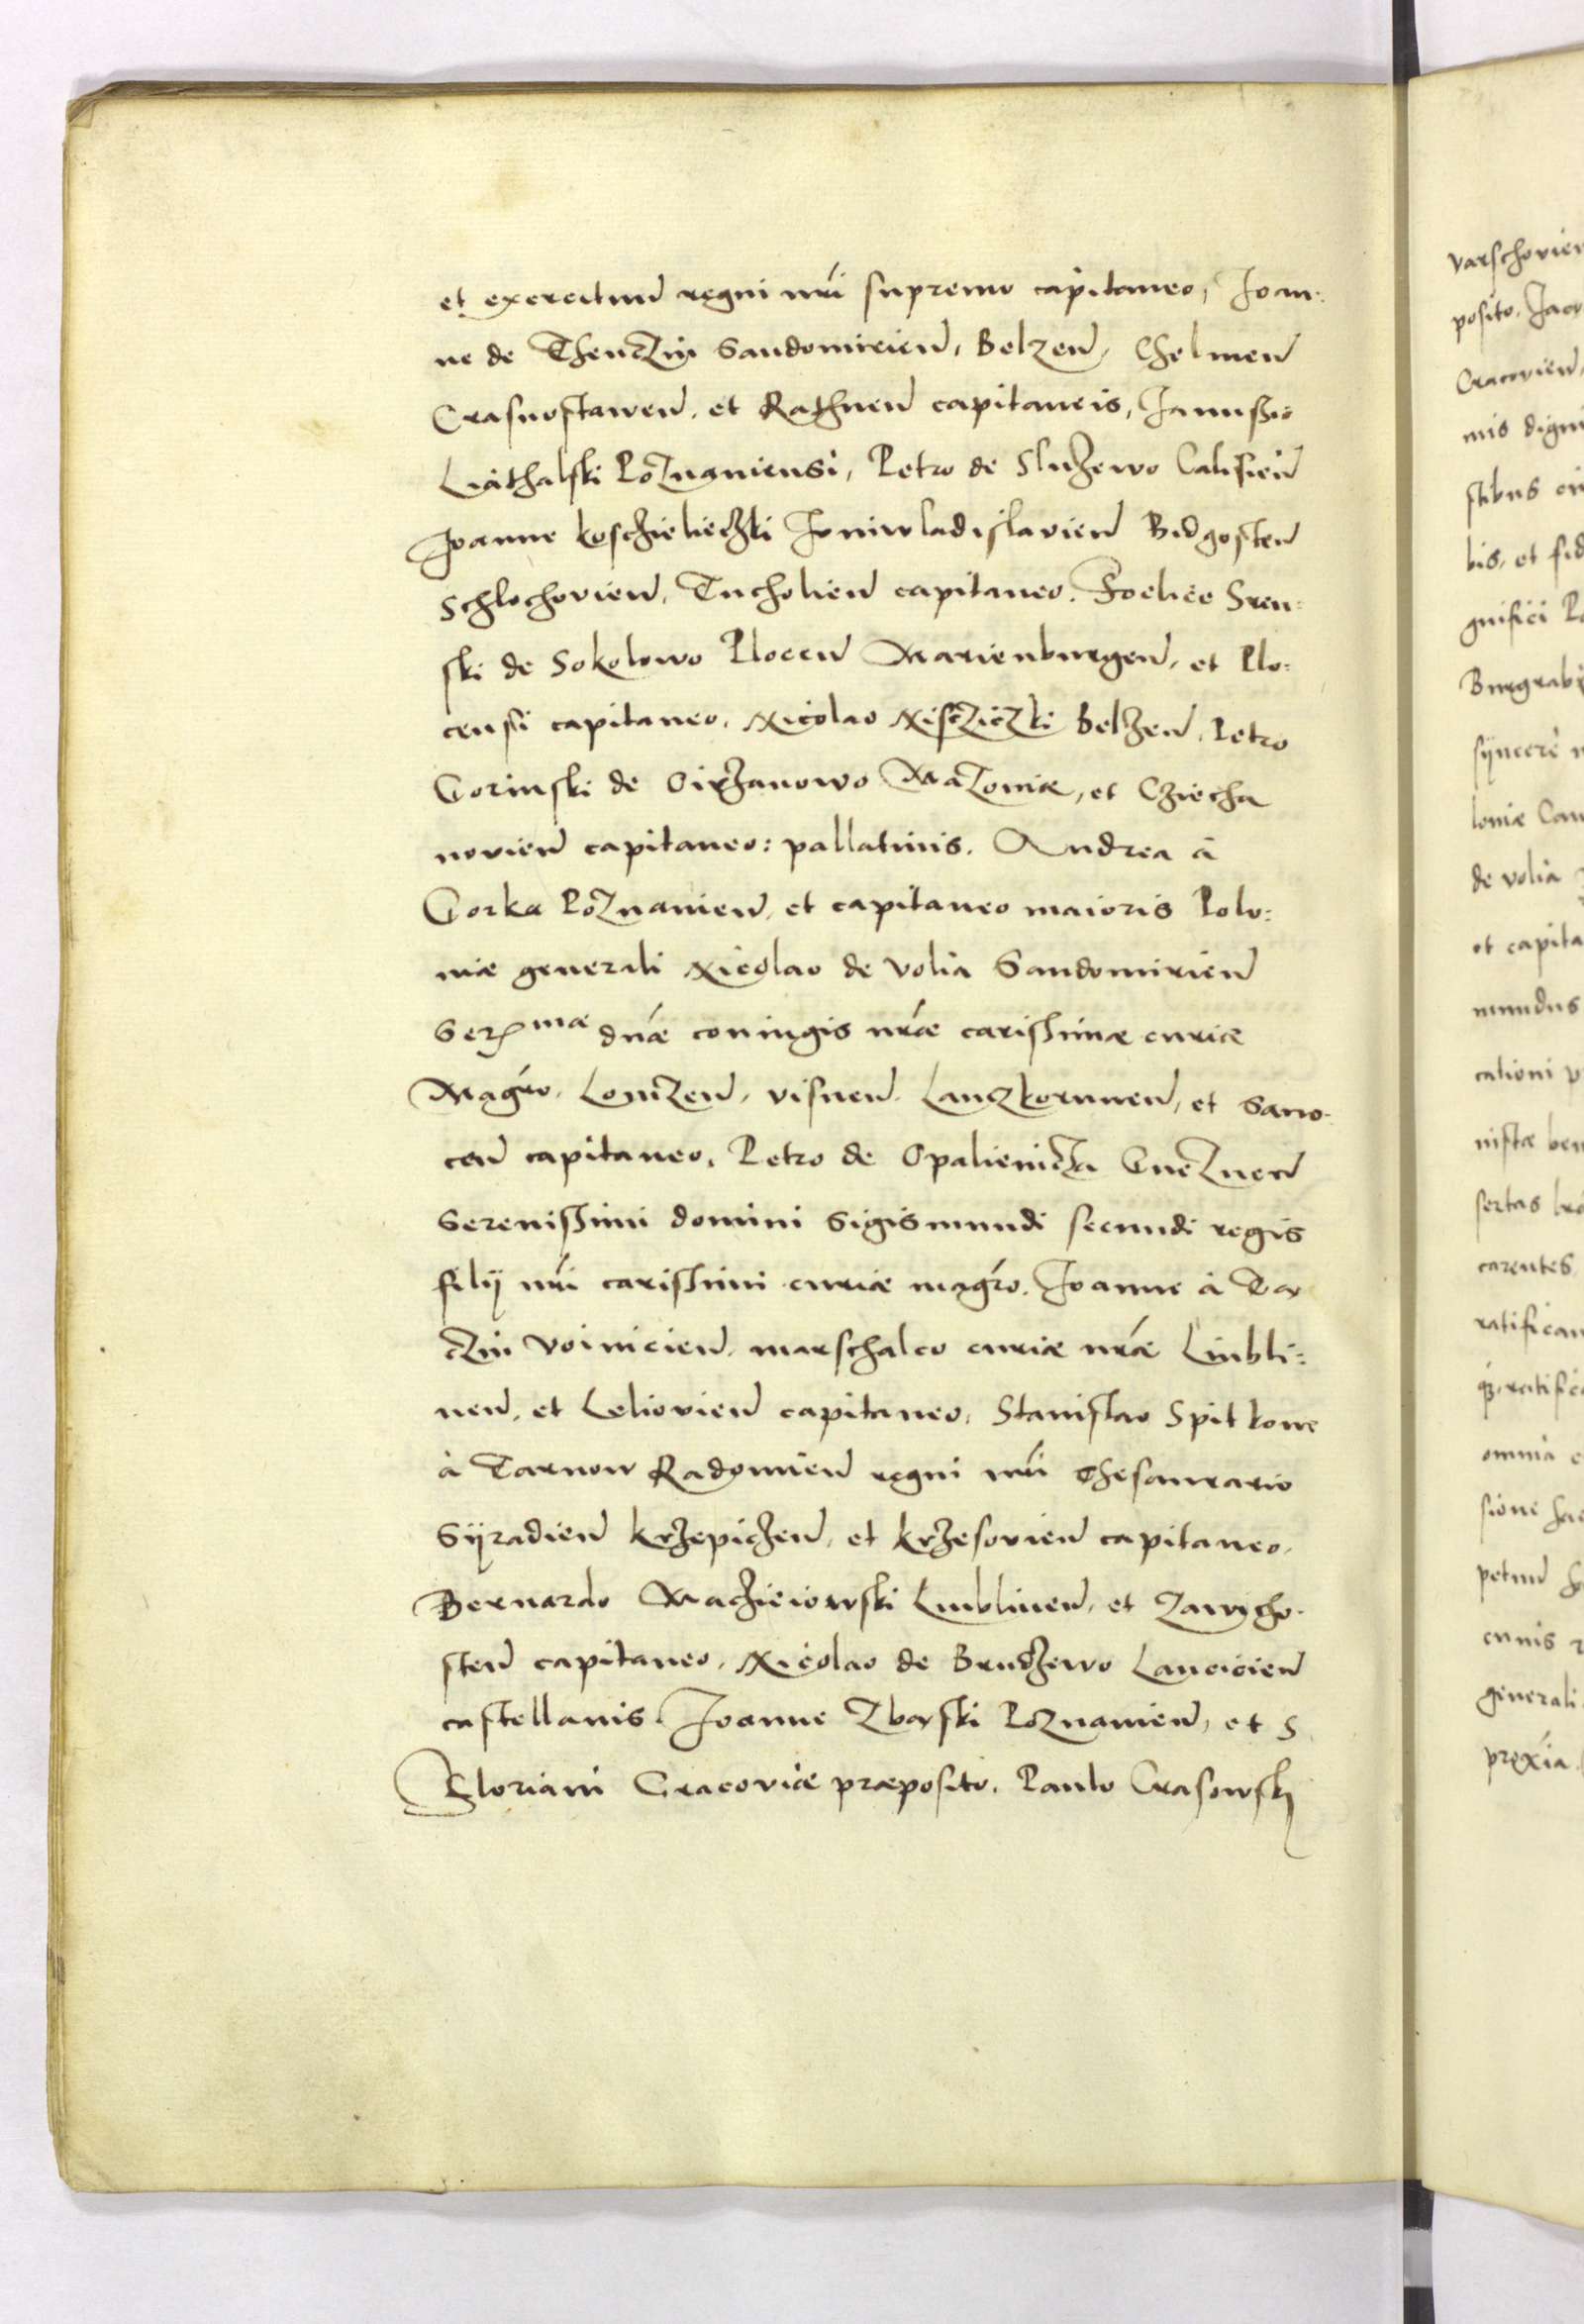 et exercituum regni nri supremo capitaneo, Joan:
ne de Thenczin Sandomirien, Belzen, Chelmen
Crasnostawen, et Rathnen capitaneis, Janussio
Liathalski Poznaniensi, Petro de Sluzewo Calisien
Joanne Koschieliechki Juniwladislavien Bidgosten
Schlochovien, Tucholien capitaneo. Foelice Sren:
ski de Sokolowo Plocen Marienburgen, et Plo:
censi capitaneo, Nicolao Niscziczki Belzen, Petro
Gorinski de Oirzanowo Mazoniæ, et Cziecha
novien capitaneo: pallatinis. Andrea à
Gorka Poznanien, et capitaneo maioris Polo:
niæ generali Nicolao de Volia Sandomirien
Ser mæ dnæ coniugis nræ carissimæ curiæ
Magro, Lomzen, Visnen, Lanczkorunen, et Sano-
cen capitaneo, Petro de Opalienicza Gneznen
Serenissimi domini Sigismundi secundi regis
filij nri carissimi curiæ magro. Joanne à Ta
czin Voinicien, marschalco curiæ nræ Liubli:
nen, et Leliovien capitaneo, Stanislao Spitkone
à Tarnow Radomien regni nri Thesaurario
Sijradien Krzepizen, et Krzesovien capitaneo,
Bernardo Macziciowski Lublinen, et Zawicho-
sten capitaneo, Nicolao de Brudzewo Lancicien
castellanis Joanne Zbaski Poznanien, et S.
Floriani Cracoviæ præposito, Paulo Crasowsky
varschovien
posito. Jaco
Cracovien,
mis digni
stibus
bis, et fid
gnifici
Burgrabi
sÿncerè
loniæ Can
de volia
et capita
mundus
cationi
nistæ ben
sertas
carentes
ratifican
ratific
omnia
sione
petuu
cunis
generali